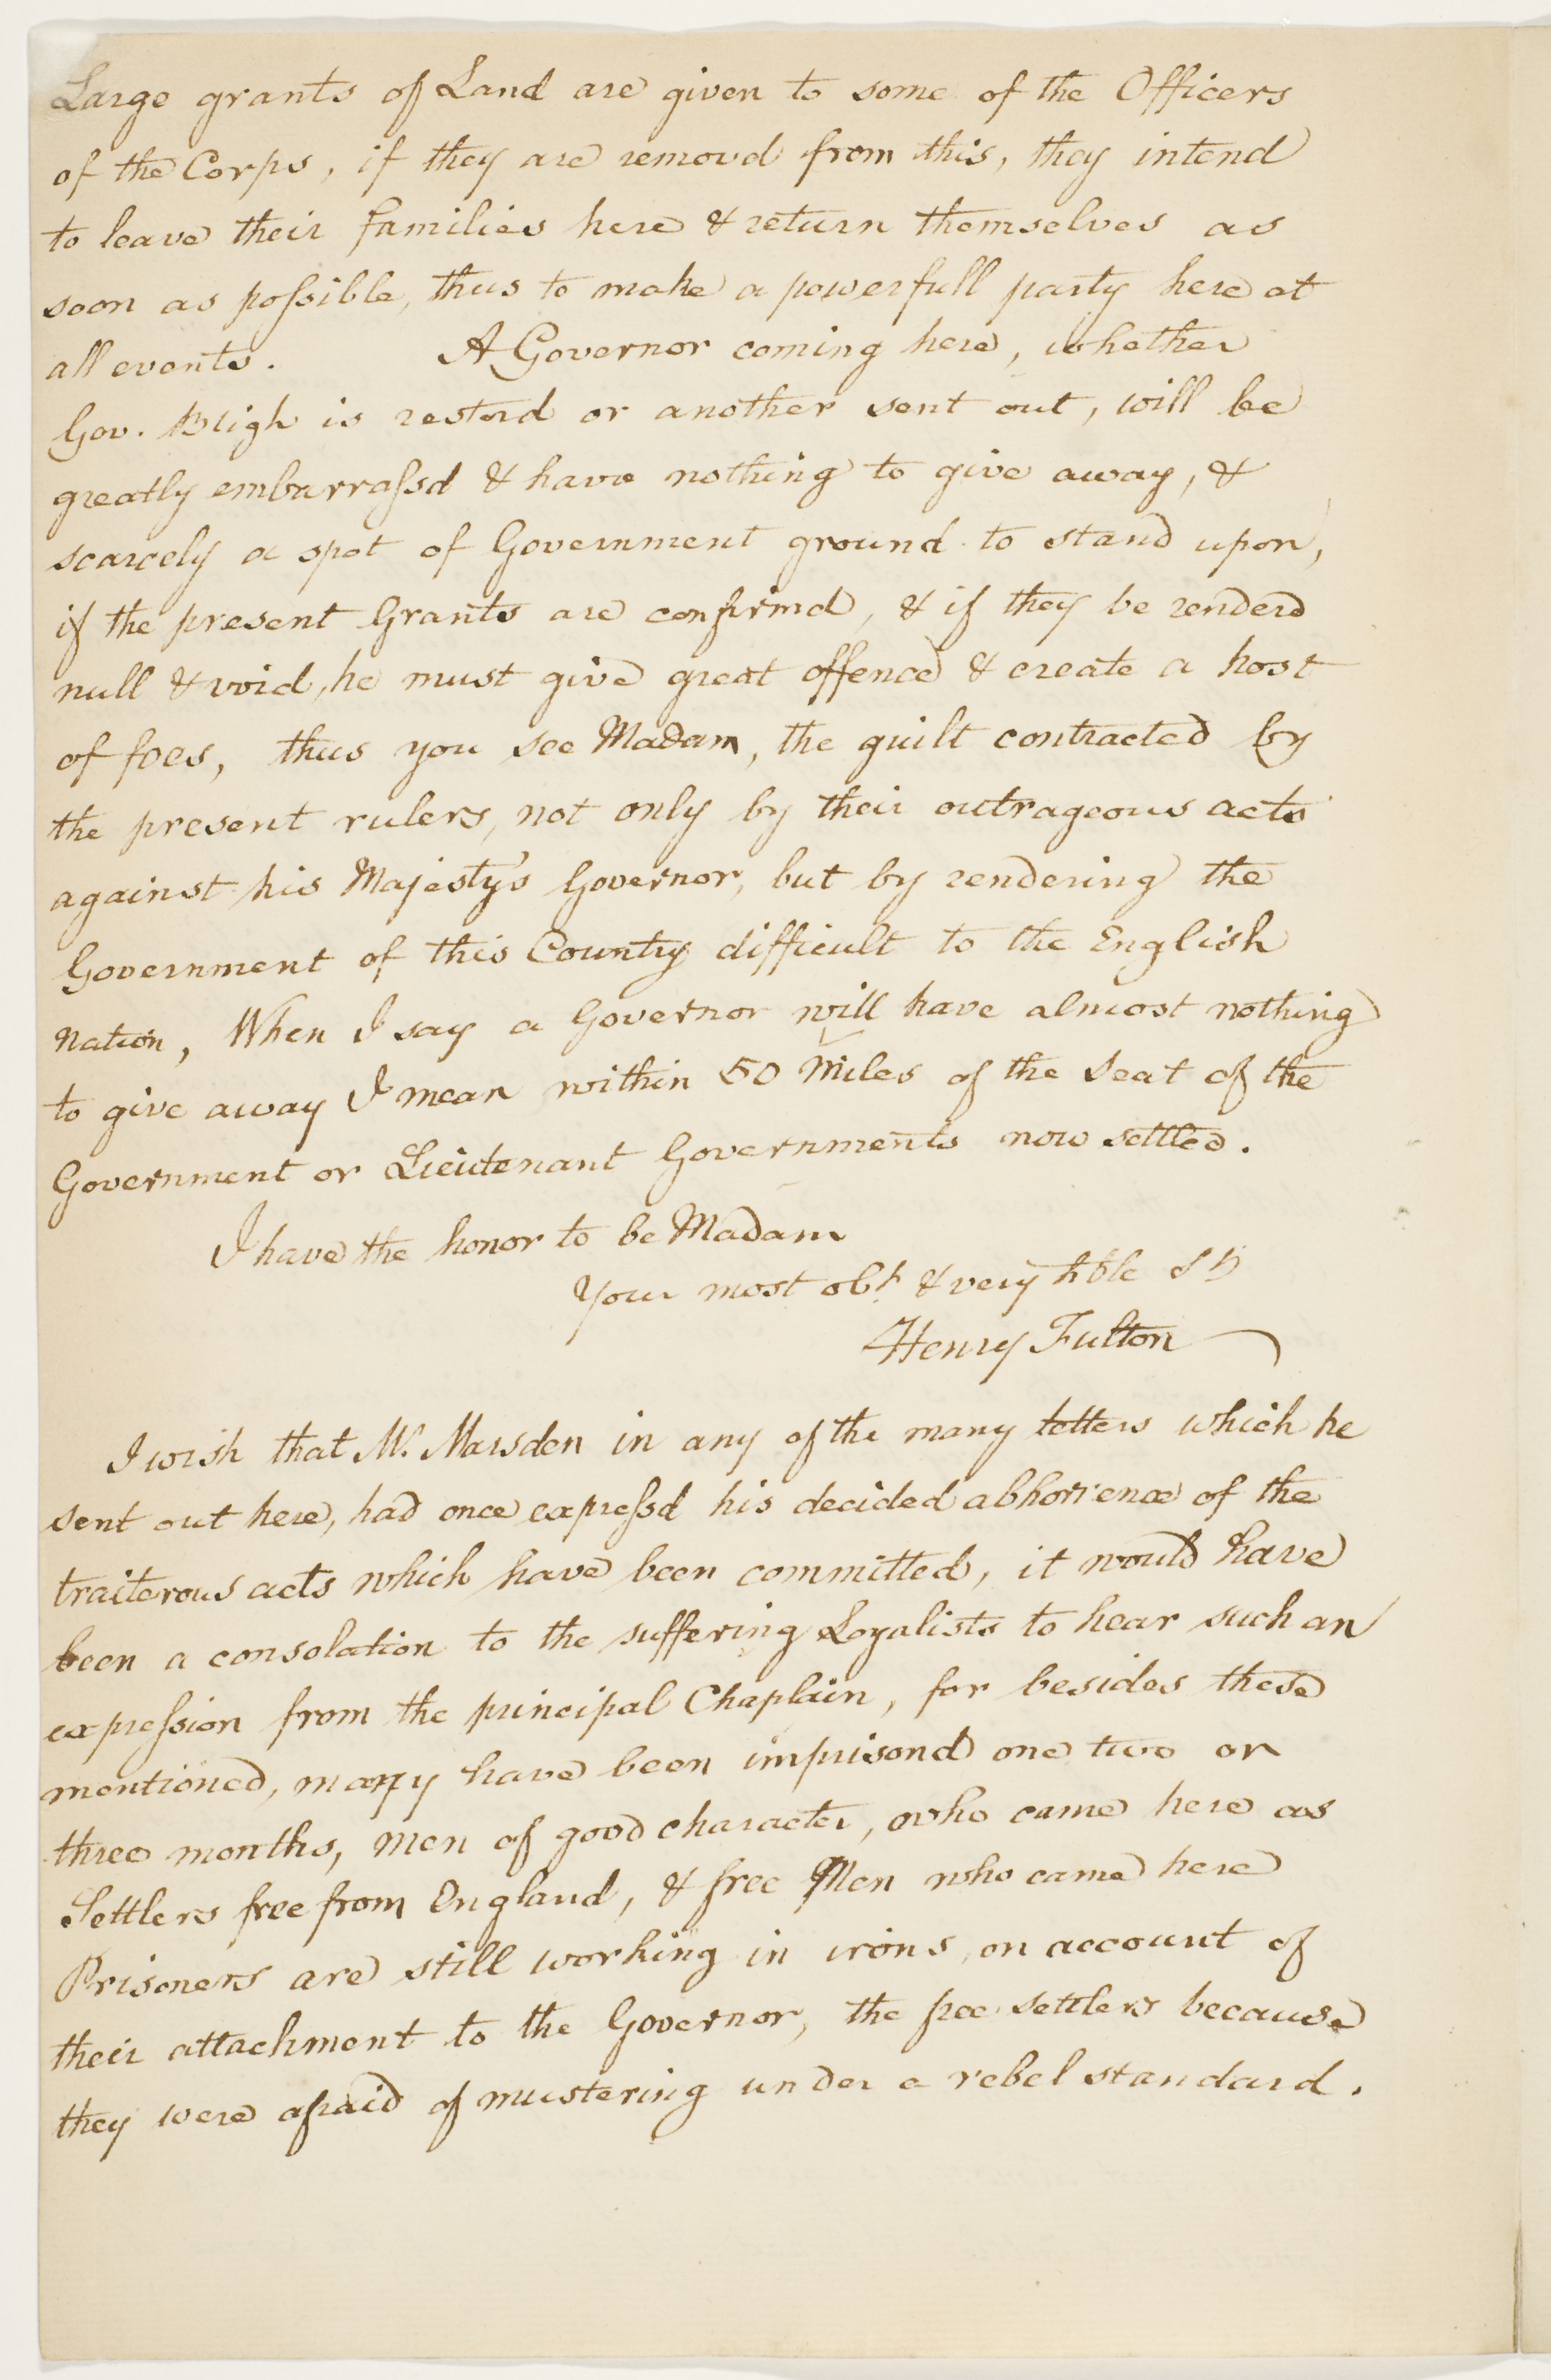 Large grants of Land are given to some of the Officers
of the Corps, if they are removd from this, they intend
to leave their families here & return themselves as
soon as poſsible, thus to make a powerfull party here at
all events. A Governor coming here, whether
Gov. Bligh is restord or another sent out, will be
greatly embarraſsd & have nothing to give away, &
scarcely a spot of Government ground to stand upon,
if the present Grants are confirmd, & if they be renderd
null & void, he must give great offence & create a host
of foes, thus you see Madam, the guilt contracted by
the present rulers, not only by their outrageous acts
against his Majesty's Governor, but by rendering the
Government of this Country difficult to the English
nation, When I say a Governor will have almost nothing
to give away I mean within 50 Miles of the Seat of the
Government or Lieutenant Governments now settled.
I have the honor to be Madam
Your most obt. & very hble St
Henry Fulton
I wish that Mr. Marsden in any of the many letters which he
sent out here, had once expreſsd his decided abhorrence of the
traiterous acts which have been committed, it would have
been a consolation to the suffering Loyalists to hear such an
expreſsion from the principal Chaplain, for besides these
mentioned, many have been imprisond one two or
three months, men of good character, who came here as
Settlers free from England, & free Men who came here
Prisoners are still working in irons, on account of
their attachment to the Governor, the free settlers because
they were afraid of mustering under a rebel standard.